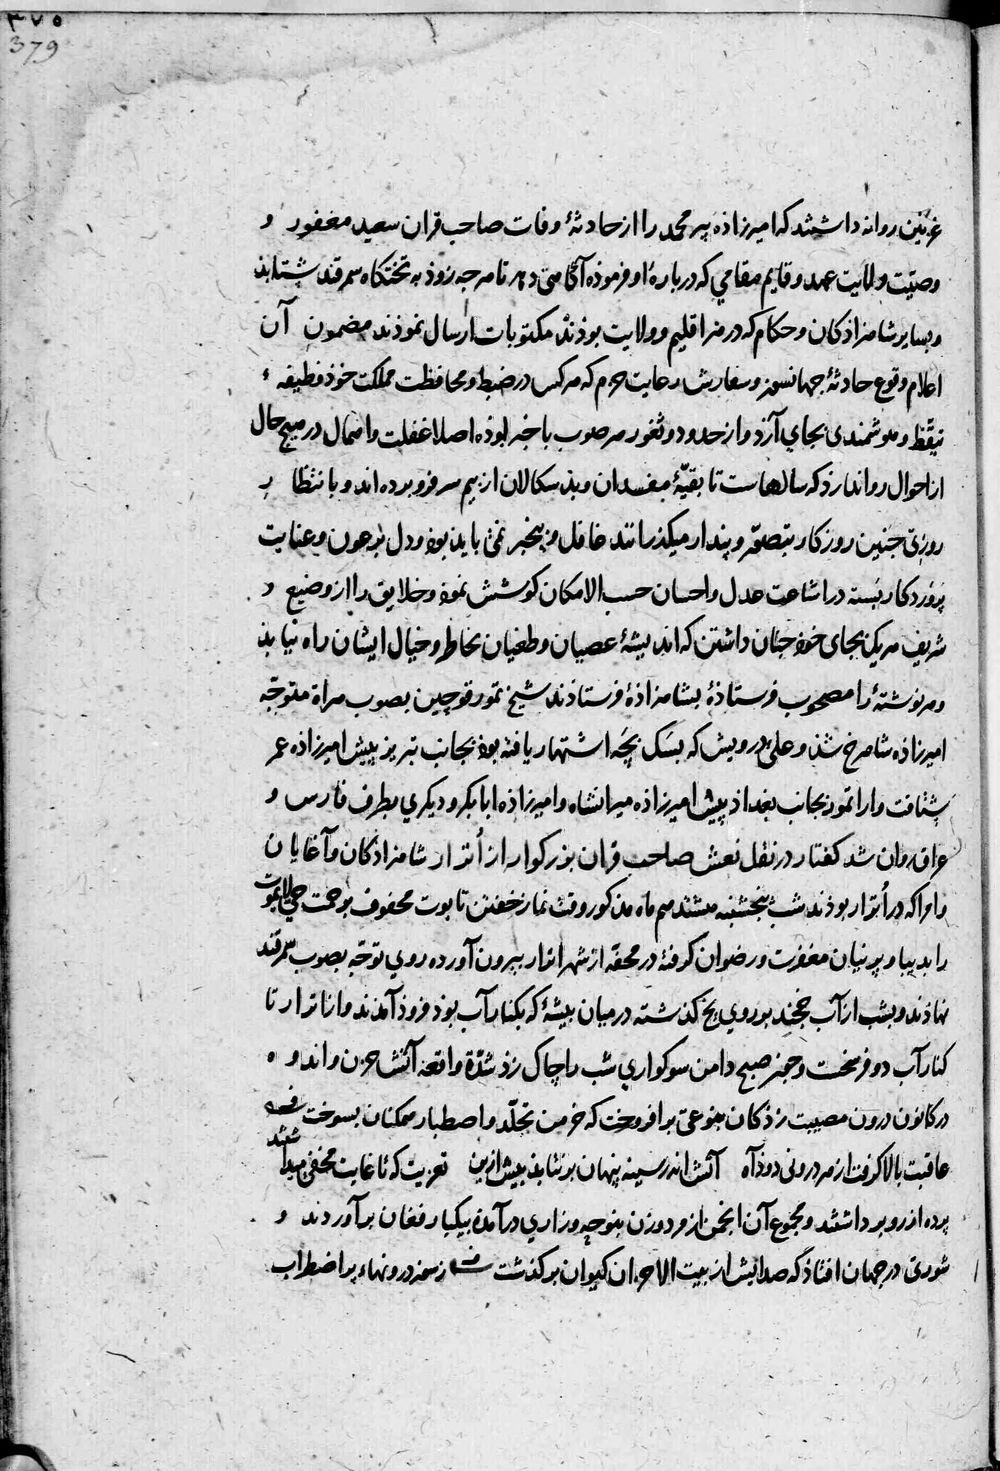 ۳۷۵
379
غزنین روانه داشتند که امیرزاده پیر محمد را از حادثهٔ وفات صاحب قران سعید مغفور و
وصیّت ولایت عهد و قایم مقامی که دربارهٔ او فرموذه آگاهی دهد تا هرچه زوذ به تختکاه سمرقند شتابذ
و بسایر شاهزاذکان و حکام که در هر اقلیم و ولایت بوذند مکتوبات ارسال نموذند مضمون آن
اعلام وقوع حادثهٔ جهانسوز و سفارش رعایت حزم که هرکس در ضبط و محافظت مملکت خوذ وظیفهٔ
تیقّظ و هوشمندی بجای آرد و از حدود و ثغور هر صوب با خبر بوذه اصلا غفلت و اهمال در هیچ حال
از احوال روا ندارد که سالهاست تا بقیّهٔ مفسدان و بذسکالان از بیم سر فرو برده اند و بانتظار
روزی چنین روزکار بتصوّر و پندار میکذرانند غافل و بیخبر نمی باید بوذ و دل بر عون و عنایت
پرورد کار بسته در اشاعت عدل و احسان حسب الامکان کوشش نموذ و خلایق را از وضیع و
شریف هر یکی بجای خوذ چنان داشتن که اندیشهٔ عصیان و طغیان بخاطر و خیال ایشان راه نیابذ
و هر نوشتهٔ را مصحوب فرستاذهٔ بشاهزاذهٔ فرستاذند شیخ تمور قوچین بصوب هراة متوجّه
امیرزاذه شاهرخ شذ و علی درویش که بسک بچه اشتهار یافته بوذ بجانب تبریز پیش امیرزاذه عمر
شتافت و اراتمور بجانب بغداذ پیش امیرزاذه میرانشاه و امیرزاذه ابابکر و دیکری بطرف فارس و
عراق روان شد کفتار در نقل نعش صاحب قران بزرکوار از أترار شاهزاذکان و آغایان
و امرا که در أترار بوذند شب پنجشنبه هشتدهم ماه مذکور وقت نماز خفتن تابوت محفوف برحمت حی لایموت
را بدیبا و پرنیان مغفرت و رضوان کرفته در محفّه از شهر اترار بیرون آورده روی توجّه بصوب سمرقند
نهاذند و بشب از آب خجند بر روی یخ کذشته در میان بیشهٔ که بکنار آب بوذ فروذ آمذند و از اترار تا
کنار آب دو فرسخست و چون صبح دامن سوکواری شب را چاک زذ شدّة واقعه آتش حزن و اندوه
در کانون درون مصیبت زذکان بنوعی برافروخت که خرمن تجلّد و اصطبار همکنان بسوخت
عاقبت بالا کرفت از هر درونی دوذ آه آتش اندر سینه پنهان برنتابذ بیش ازین تعزیت که تا غایت مخفی میداشتند
پرده از رو برداشتند و مجموع آن انجمن از مرد و زن بنوحه و زاری درآمده بیکبار فغان برآوردند و
شوری در جهان افتاذ که صدایش از بیت الاحزان کیوان برکذشت ز سوز درونها و بر اضطراب